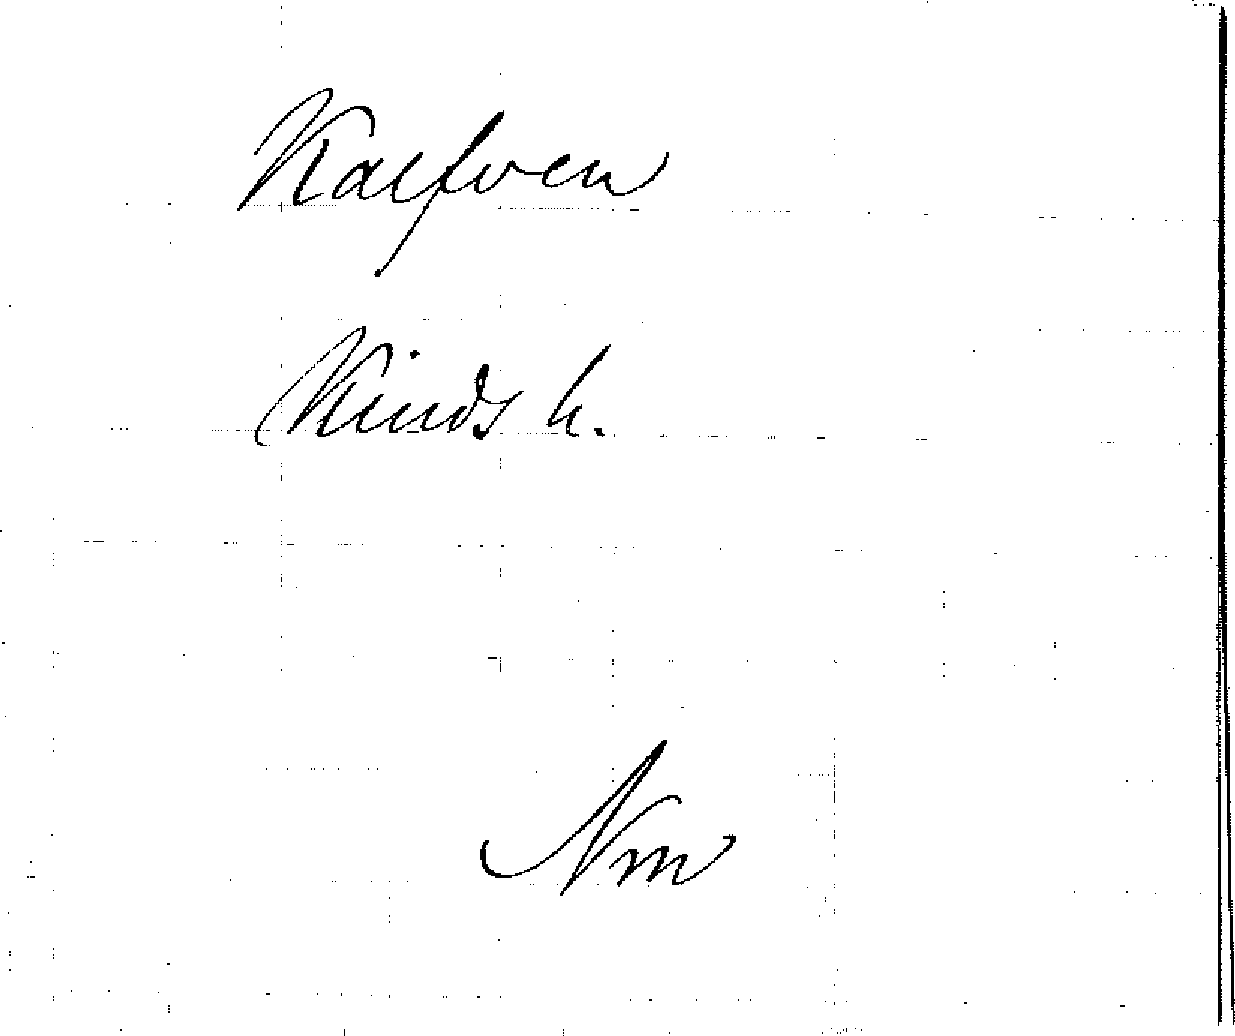 Kalfven
Kinds h.
Nm